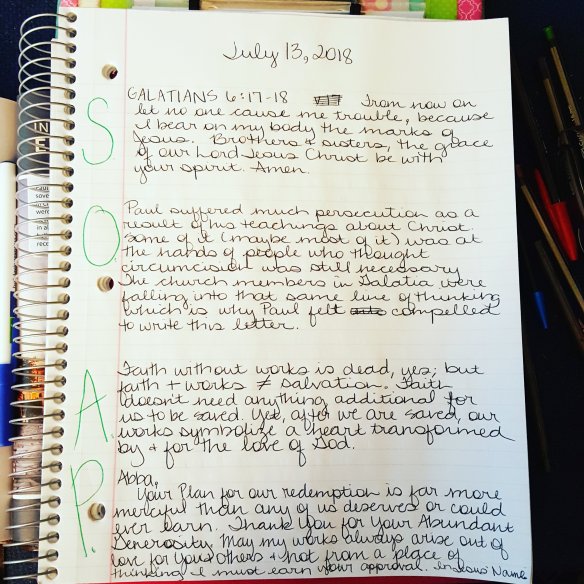 July 13, 2018
S
GALATIANS 6:17-18 From now on
let no one cause me trouble, because
I bear on my body the marks of
Jesus. Brothers & sisters, the grace
of our Lord Jesus Christ be with
your spirit. Amen.
O
Paul suffered much persecution as a
result of his teachings about Christ.
Some of it (maybe most of it) was at
the hands of people who thought
circumcision was still necessary.
The church members in Galatia were
falling into that same line of thinking
which is why Paul felt compelled
to write this letter.
A.
Faith without works is dead, yes; but
faith + works ≠ salvation. Faith
doesn't need anything additional for
us to be saved. Yet, after we are saved, our
works symbolize a heart transformed
by & for the love of God.
P.
Abba,
Your Plan for our redemption is far more
merciful than any of us deserves or could
ever earn. Thank You for Your Abundant
Generosity. May my works always arise out of
love for You & others & not from a place of
thinking I must earn your approval. In Jesus' Name